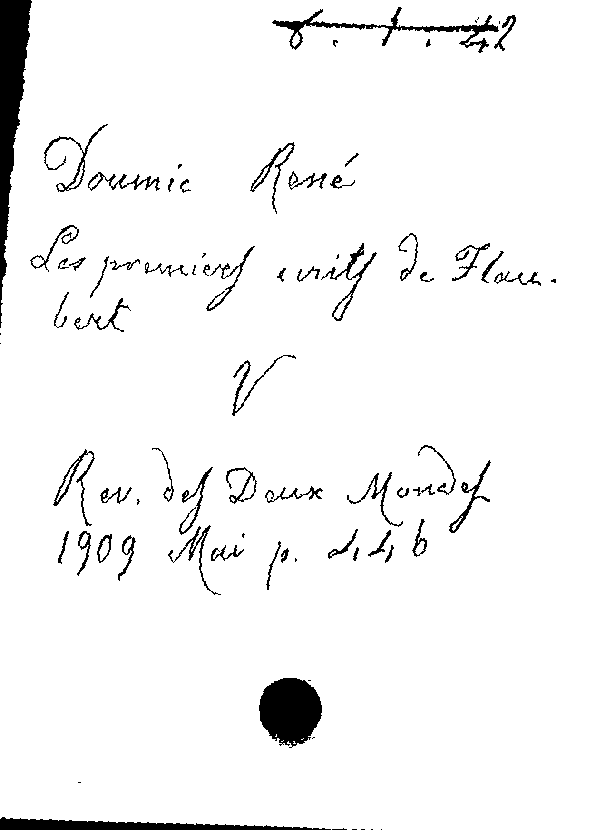 6. 1. 42
Doumic René
Les premiers ecrits de Flau-
bert
V
Rev. des Deux Mondes
1909 Mai p. 446